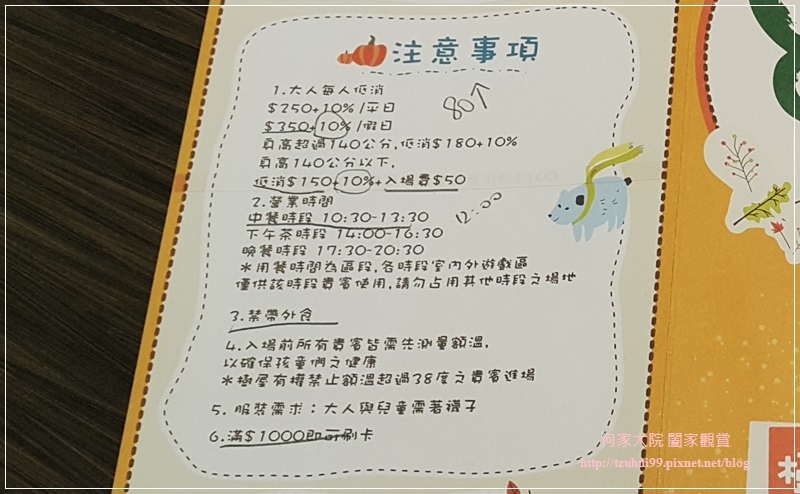 注意事項
1.大人每人低消
$250+10%/平日
$350+10%/假日
80↑
身高超過140公分,低消$180+10%
身高140公分以下,
低消$150+10%+入場費$50
2.營業時間
中餐時段 10:30-13:30
12:00
下午茶時段 14:00-16:30
晚餐時段 17:30-20:30
*用餐時間為區段,各時段室內外遊戲區
僅供該時段貴賓使用,請勿占用其他時段之場地
3.禁帶外食
4.入場前所有貴賓皆需先測量額溫,
以確保孩童們之健康
*樹屋有權禁止額溫超過38度之貴賓進場
5. 服裝需求：大人與兒童需著襪子
6.滿$1000即可刷卡
何家大院 闔家觀賞
http://tzuhui99.pixnet.net/blog